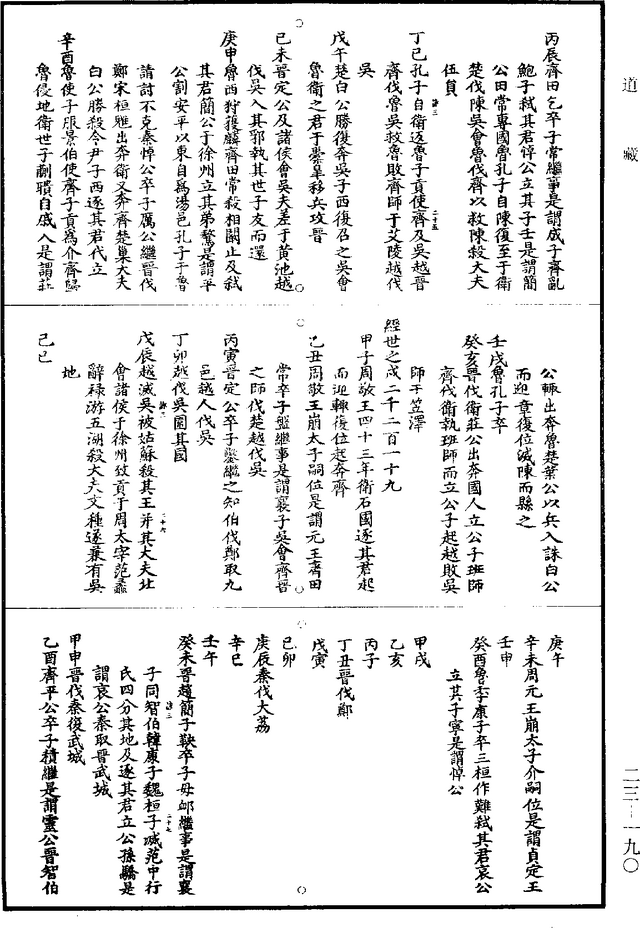 道藏
丙辰齊田乞卒子常繼事是謂成子齊亂
鮑子弑其君悼公立其子壬是謂簡
公田常專國魯孔子自陳復至于衛
楚伐陳吳會魯伐齊以救陳殺大夫
伍員
丁巳孔子自衛返魯子貢使齊及吳越晉
齊伐魯吳救魯敗齊師于艾陵越伐
吳
戊午楚白公勝復奔吳子西復召之吳會
魯衛之君于橐皋移兵攻晉
己未晉定公及諸侯會吳夫差于黃池越
伐吳入其郛執其世子友而還
庚申魯西狩獲麟齊田常殺相闞止及弑
其君簡公于徐州立其弟驁是謂平
公割安平以東自爲湯邑孔子于魯
請討不克秦悼公卒子厲公繼晉伐
鄭宋桓魋出奔衛又奔齊楚巢大夫
白公勝殺令尹子西逐其君代立
辛酉魯使子服景伯使齊子貢爲介齊歸
魯侵地衛世子蒯聵自戚入是謂莊
公輒出奔魯楚葉公以兵入誅白公
而迎章復位滅陳而縣之
壬戌魯孔子卒
癸亥晉伐衛莊公出奔國人立公子班師
齊伐衛執班師而立公子起越敗吳
師于笠澤
經世之戌二千二百一十九
甲子周敬王四十三年衛石圃逐其君起
而迎輒復位起奔齊
乙丑周敬王崩太子嗣位是謂元王齊田
常卒子盤繼事是謂襄子吳會齊晉
之師伐楚越伐吳
丙寅晉定公卒子鑿繼之知伯伐鄭取九
邑越人伐吳
丁卯越伐吳圍其國
戊辰越滅吳被姑蘇殺其王并其大夫北
會諸侯于徐州致貢于周太宰范蠡
辭祿游五湖殺大夫文種遂兼有吳
地
己巳
庚午
辛未周元王崩太子介嗣位是謂貞定王
壬申
癸酉魯季康子卒三桓作難弑其君哀公
立其子寧是謂悼公
甲戌
乙亥
丙子
丁丑晉伐鄭
戊寅
己卯
庚辰秦伐大荔
辛巳
壬午
癸未晉趙簡子鞅卒子毋卹繼事是謂襄
子同智伯韓康子魏桓子滅范中行
氏四分其地及逐其君立公孫驕是
謂哀公秦取晉武城
甲申晉伐秦復武城
乙酉齊平公卒子積繼是謂靈公晉智伯
二三—一九〇